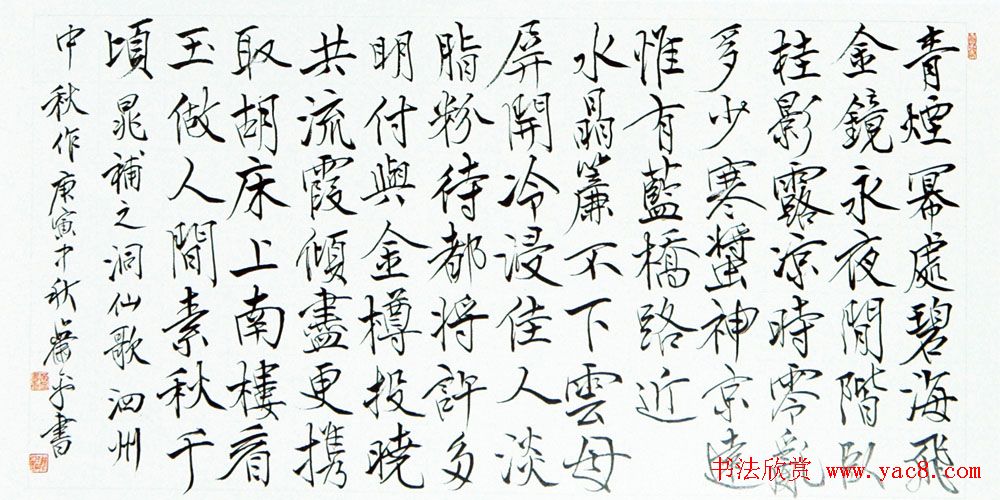 青煙冪處碧海飛
金鏡永夜間階臥
桂影露涼時零亂
多少寒螿神京遠
惟有藍橋路近
水晶簾不下雲母
屏開冷浸佳人淡
脂粉待都將許多
明付與金樽投曉
共流霞傾盡更携
取胡床上南樓看
玉做人間素秋千
頃 晁補之洞仙歌泗州
中秋作 庚寅中秋 書
书法欣赏 www.yac8.com